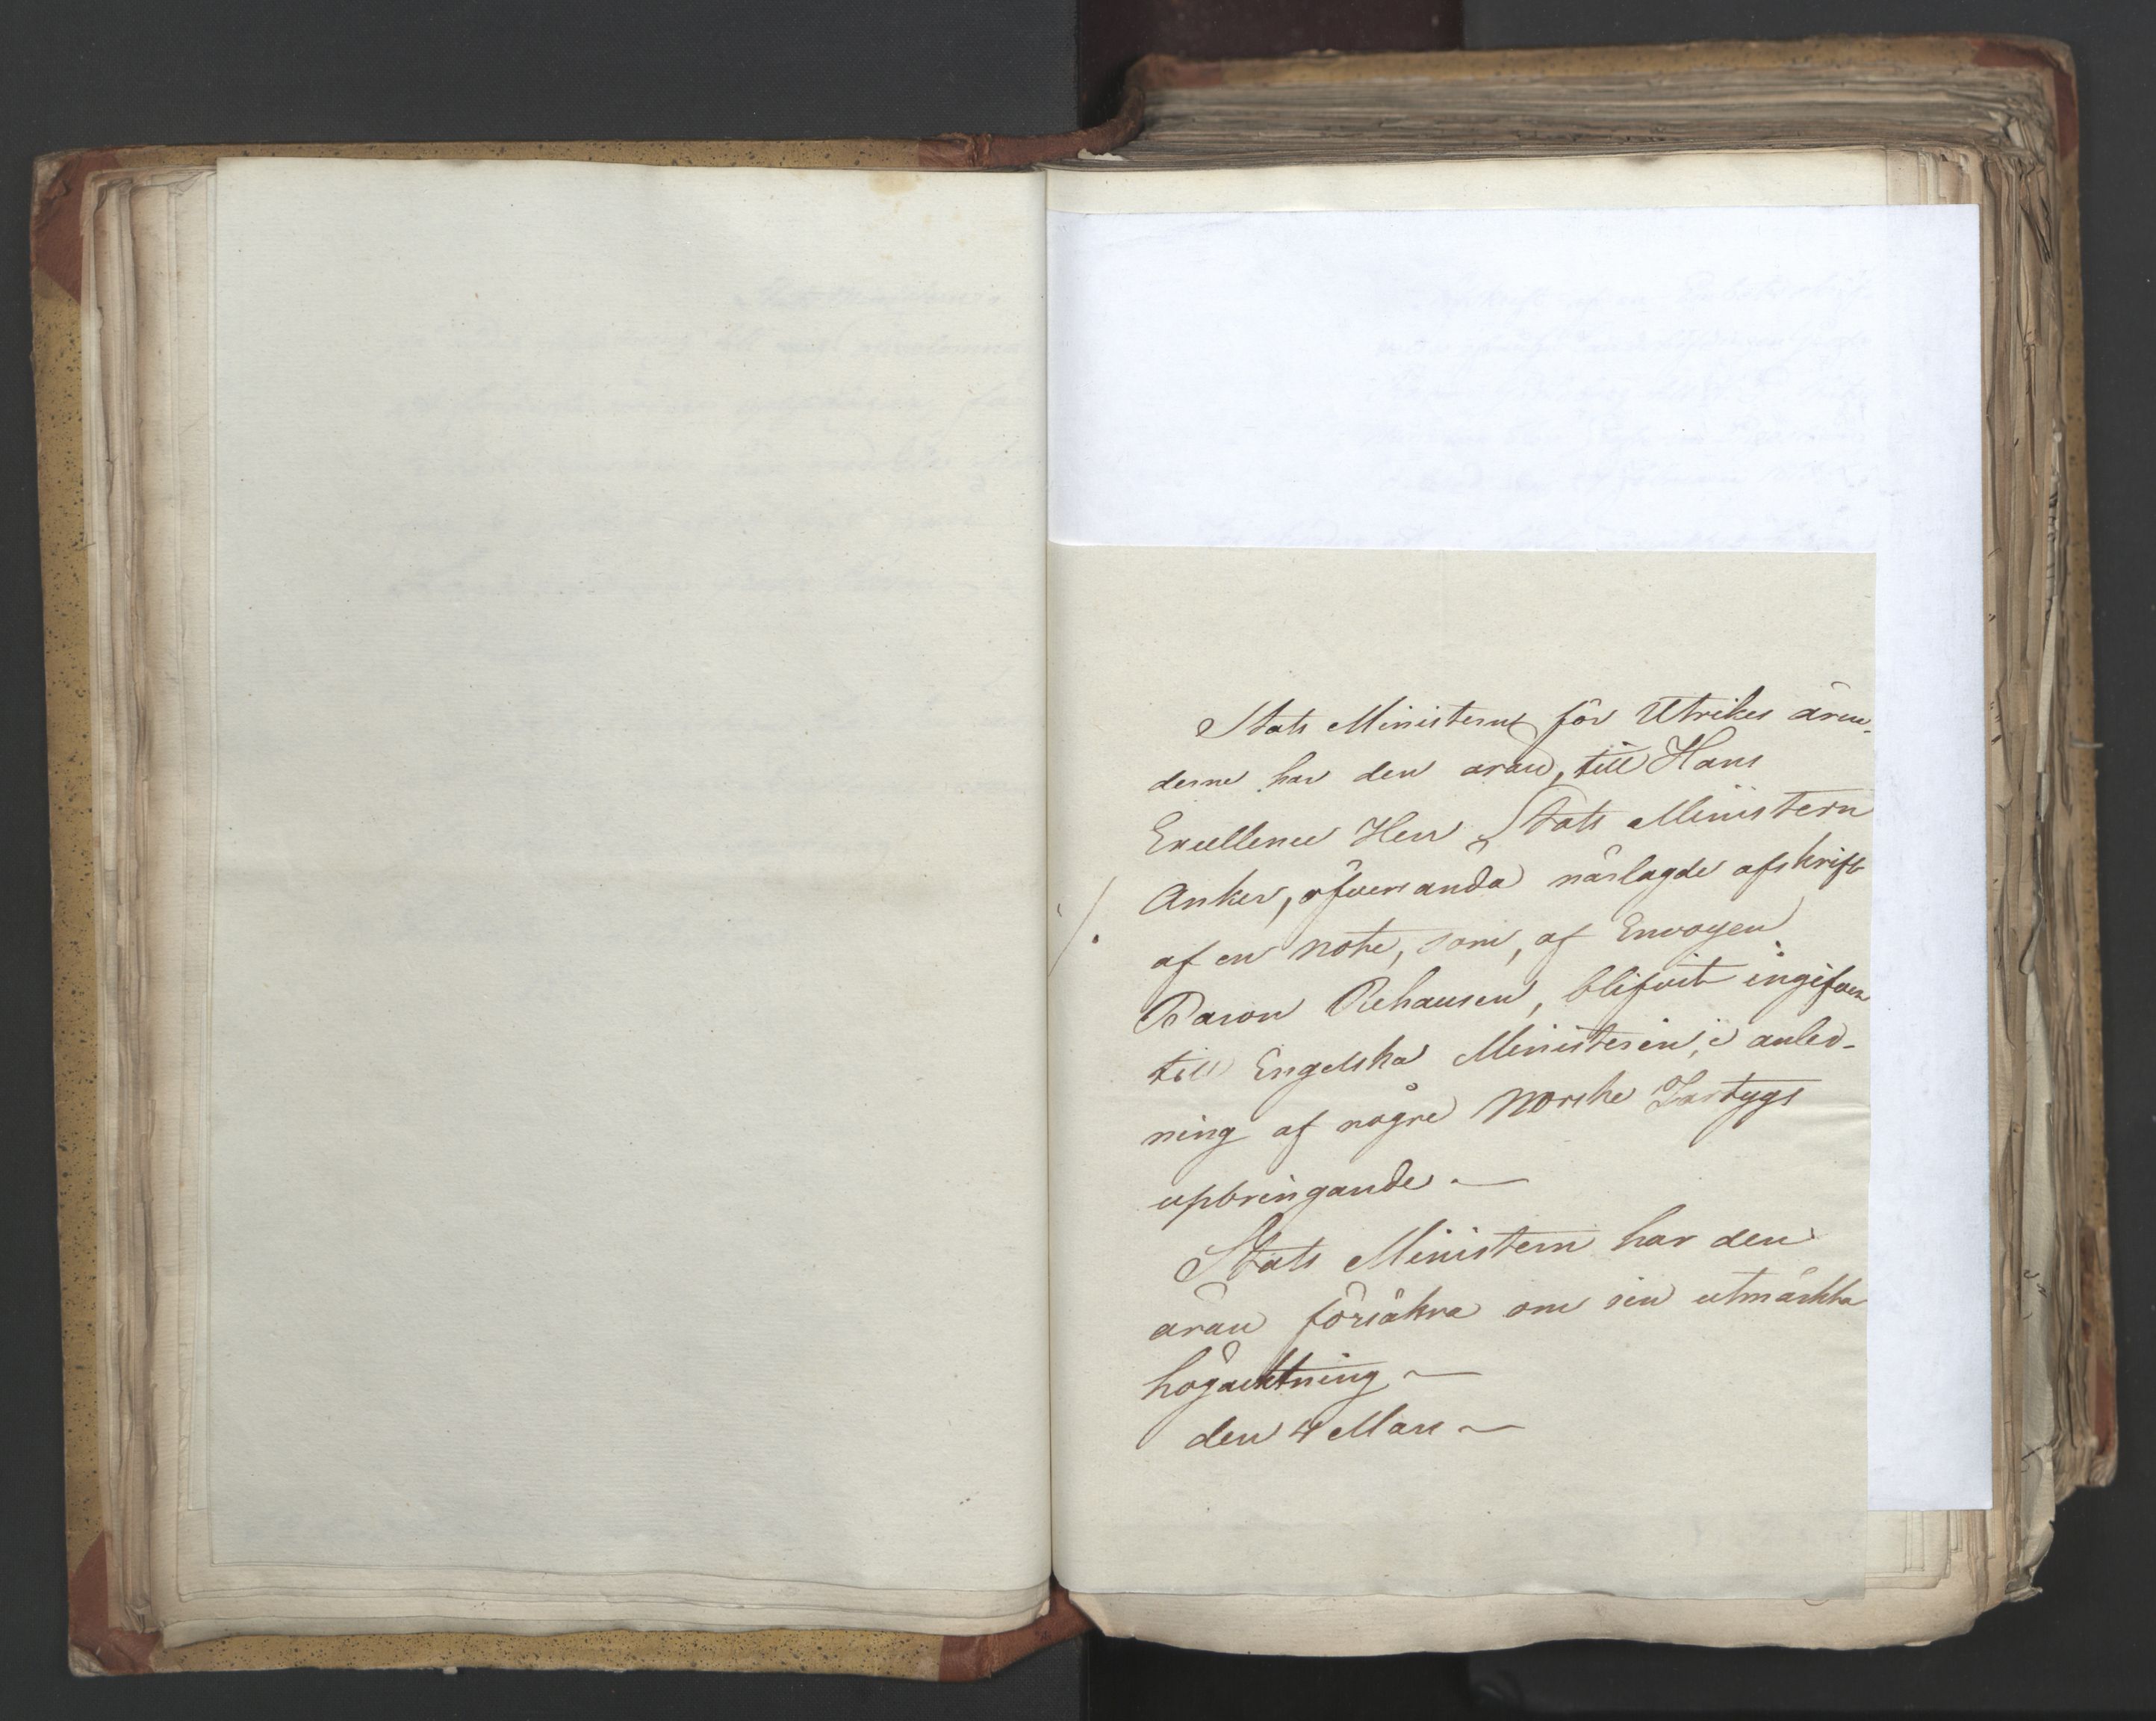 Stats Ministern för Utrikes ären-
derne har den äran, till Hans
Excellence Herr Stats Ministern
Anker, öfversända närlagde afskrift
/.
af en note, som, af Envoyen
Baron Rehausen, blifvit ingifven
till Engelska Ministeren, i anled-
ning af någre Norske Fartygs
upbringande. —
Stats Ministern har den
äran försäkra om sin utmärkta
högachtning —
den 4 Mars —